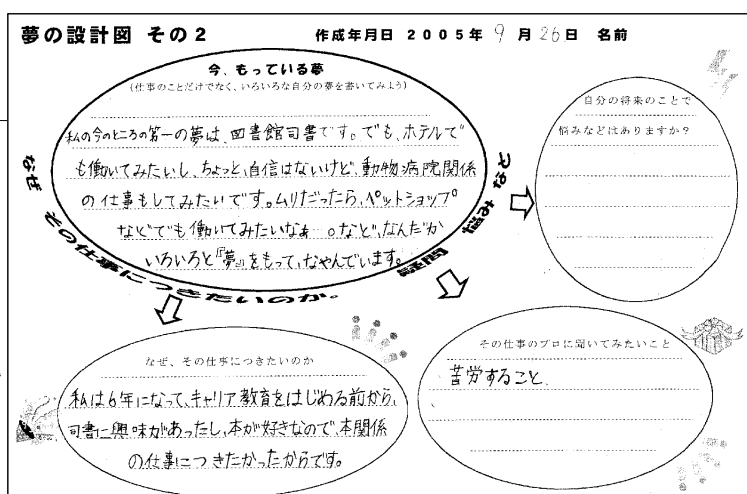 夢の設計図 その2
作成年月日 2005年 9月26日 名前
今、もっている夢
(仕事のことだけでなく、いろいろな自分の夢を書いてみよう)
私の今のところの第一の夢は、図書館司書です。でも、ホテルで
も働いてみたいし、ちょっと、自信はないけど、動物病院関係
の仕事もしてみたいです。ムリだったら、ペットショップ
などででも働いてみたいなぁ…。など、なんだか
いろいろと『夢』をもって、なやんでいます。
なぜ その仕事につきたいのか。
疑問 悩みなど
自分の将来のことで
悩みなどはありますか?
なぜ、その仕事につきたいのか
私は6年になって、キャリア教育をはじめる前から、
司書に興味があったし、本が好きなので、本関係
の仕事につきたかったからです。
その仕事のプロに聞いてみたいこと
苦労すること。